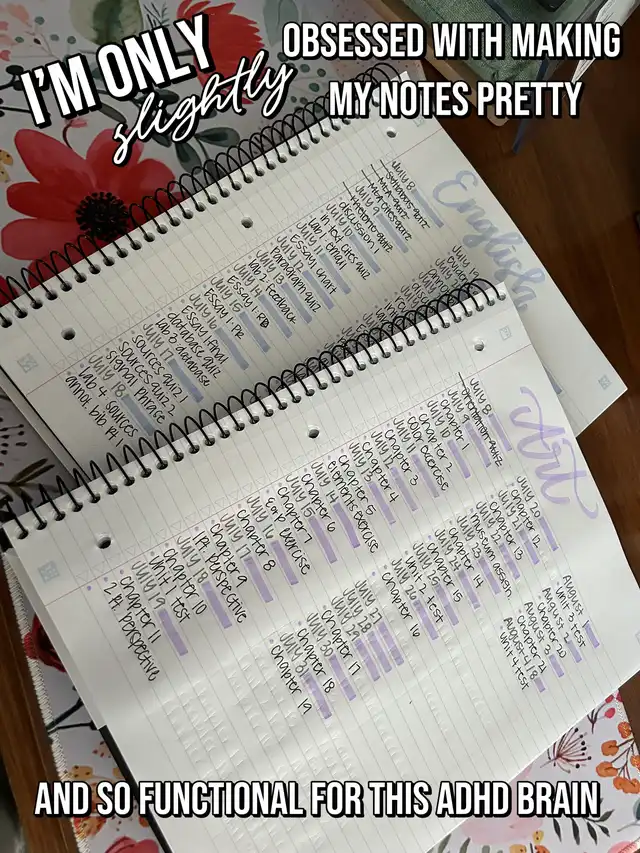 I'M ONLY
slightly
OBSESSED WITH MAKING
MY NOTES PRETTY
English
July 8
syllabus quiz
MLA cites quiz
July 9
July 10
discussion 1
text cites quiz
email
essay 1 draft
July 14
feedback
July 15
essay 1 PR
July 16
essay 1 final
database quiz
lab 3 database
July 17
sources quiz 1
sources quiz 2
signal phrase
July 18
lab 4 sources
annot. bib pt. 1
July 19
Art
July 8
orientation quiz
July 9
chapter 1
July 10
chapter 2
color exercise
July 11
chapter 3
July 12
chapter 4
July 13
chapter 5
July 14
elements exercise
July 15
chapter 6
chapter 7
July 16
comp exercise
chapter 8
July 17
chapter 9
1 pt. perspective
July 18
unit 1 test
chapter 10
July 19
chapter 11
2 pt. perspective
July 20
chapter 12
July 21
chapter 13
July 22
museum assign
July 23
chapter 14
July 24
chapter 15
July 25
unit 2 test
July 26
chapter 16
July 27
July 28
chapter 17
July 29
chapter 18
July 30
July 31
chapter 19
August 1
unit 3 test
August 2
chapter 20
August 3
chapter 21
August 4/8
unit 4 test
AND SO FUNCTIONAL FOR THIS ADHD BRAIN